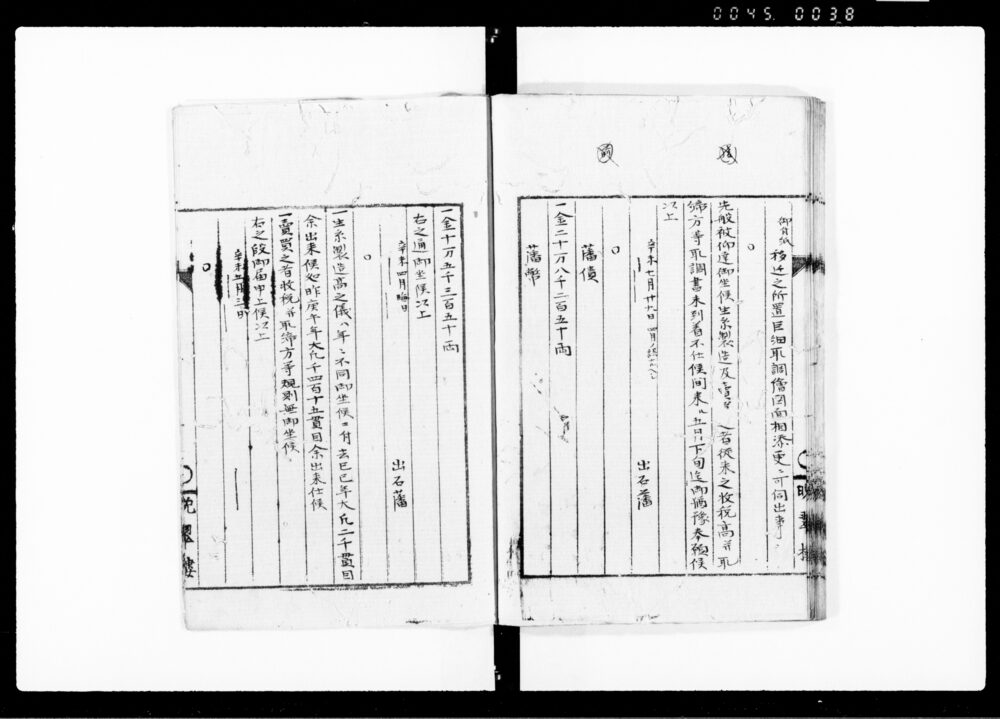 0045. 0038
御付紙
移迁之所置巨細取調繪図面相添更ニ可伺出事
○
先般被仰達御坐候生糸製造及賣買之者従来之収税高并取
締方等取調書未到着不仕候間来ル五日下旬迄御猶豫奉願候
以上
辛未七月廿九日
出石藩
○
藩債
一金二十一万八千二百五十両
藩幣
一金十一万五千三百五十両
右之通御坐候以上
辛未四月晦日
出石藩
○
一生糸製造高之儀ハ年ニ不同御坐候ニ付去巳巳年大凡二千貫目
余出来候処昨庚午年大凡千四百十五貫目余出来仕候
一賣買之者収税并取締方等規則無御坐候
右之段御届申上候以上
辛未五月二日
○